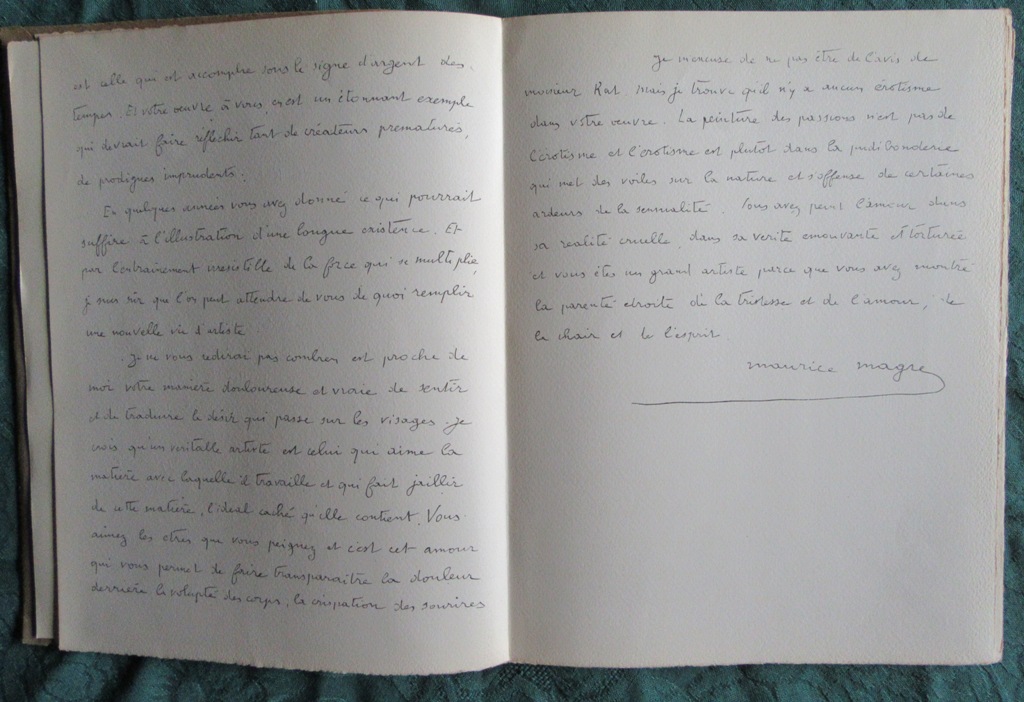 est celle qui est accomplie sous le signe d'argent des
tempes. Et votre oeuvre à vous, en est un étonnant exemple
qui devrait faire réfléchir tant de créateurs prematurés,
de prodigues imprudents.
En quelques années vous avez donné ce qui pourrait
suffire à l'illustration d'une longue existence. Et
par l'entrainement irresistible de la force qui se multiplie,
je suis sûr que l'on peut attendre de vous de quoi remplir
une nouvelle vie d'artiste.
Je ne vous cederai pas combien est proche de
moi votre manière douloureuse et vraie de sentir
et de traduire le désir qui passe sur les visages. Je
crois qu'un veritable artiste est celui qui aime la
matière avec laquelle il travaille et qui fait jaillir
de cette matière, l'idéal caché qu'elle contient. Vous
aimez les etres que vous peignez et c'est cet amour
qui vous permet de faire transparaître la douleur
derrière la volupté des corps, la crispation des sourires
Je m'excuse de ne pas être de l'avis de
monsieur Rat. Mais je trouve qu'il n'y a aucun érotisme
dans votre oeuvre. La peinture des passions n'est pas de
l'érotisme et l'érotisme est plutôt dans la pudibonderie
qui met des voiles sur la nature et s'offense de certaines
ardeurs de la sensualité. Vous avez peint l'amour dans
sa réalité cruelle, dans sa verité emouvante et torturée
et vous êtes un grand artiste parce que vous avez montré
la parenté etroite de la tristesse et de l'amour, de
la chair et de l'esprit.
maurice magre